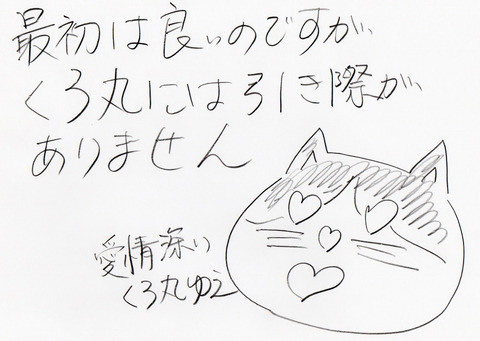 最初は良いのですが、
くろ丸には引き際が、
ありません
愛情深い
くろ丸ゆえ